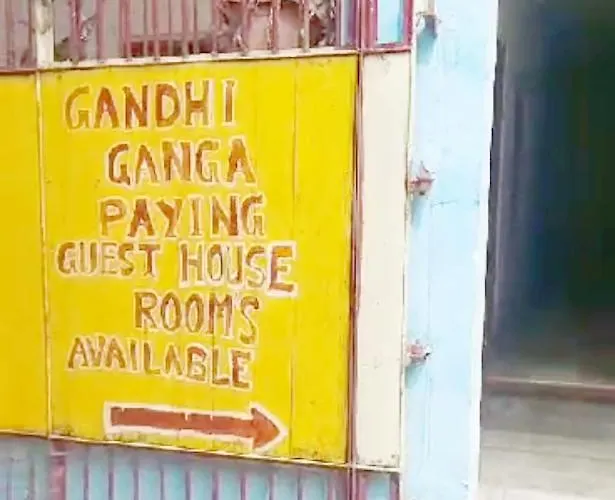 GANDHI
GANGA
PAYING
GUEST HOUSE
ROOM'S
AVAILABLE